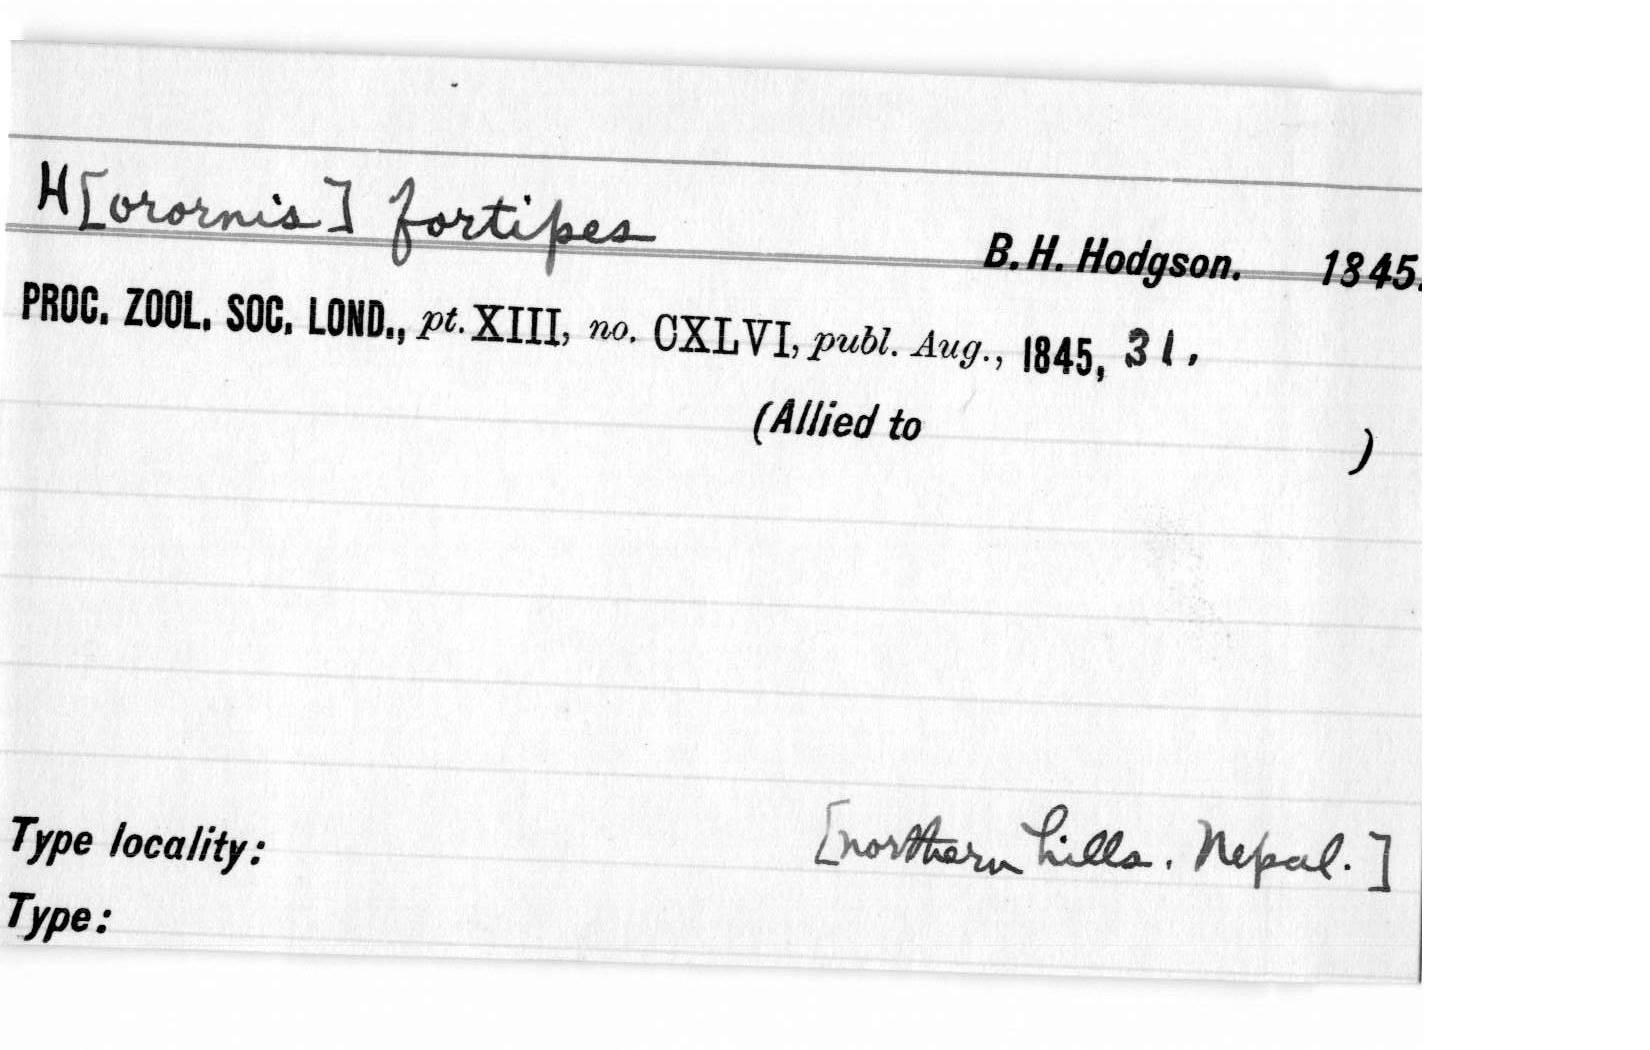 H[orornis] fortipes B. H. Hodgson. 1845.
PROC. ZOOL. SOC. LOND., pt. XIII, no. CXLVI, publ. Aug., 1845, 31.
(Allied to )
Type locality: [northern hills, Nepal.]
Type: